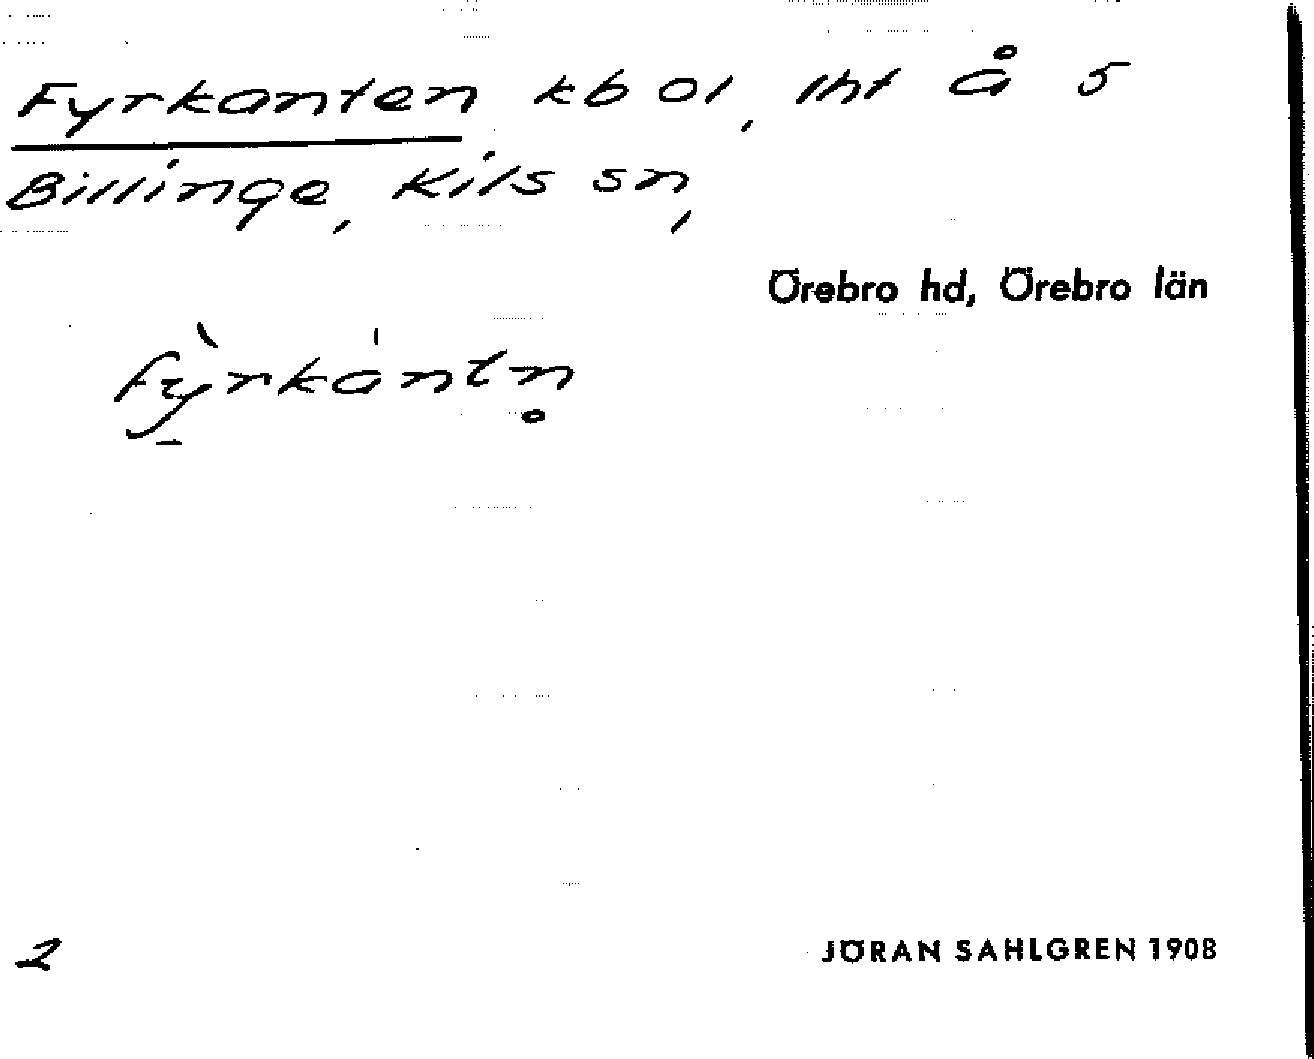 Fyrkanten kbol, lht å 5
Billinge, Kils sn,
Örebro hd, Örebro län
fỳ̠rkántn̥
2
JÖRAN SAHLGREN 1908